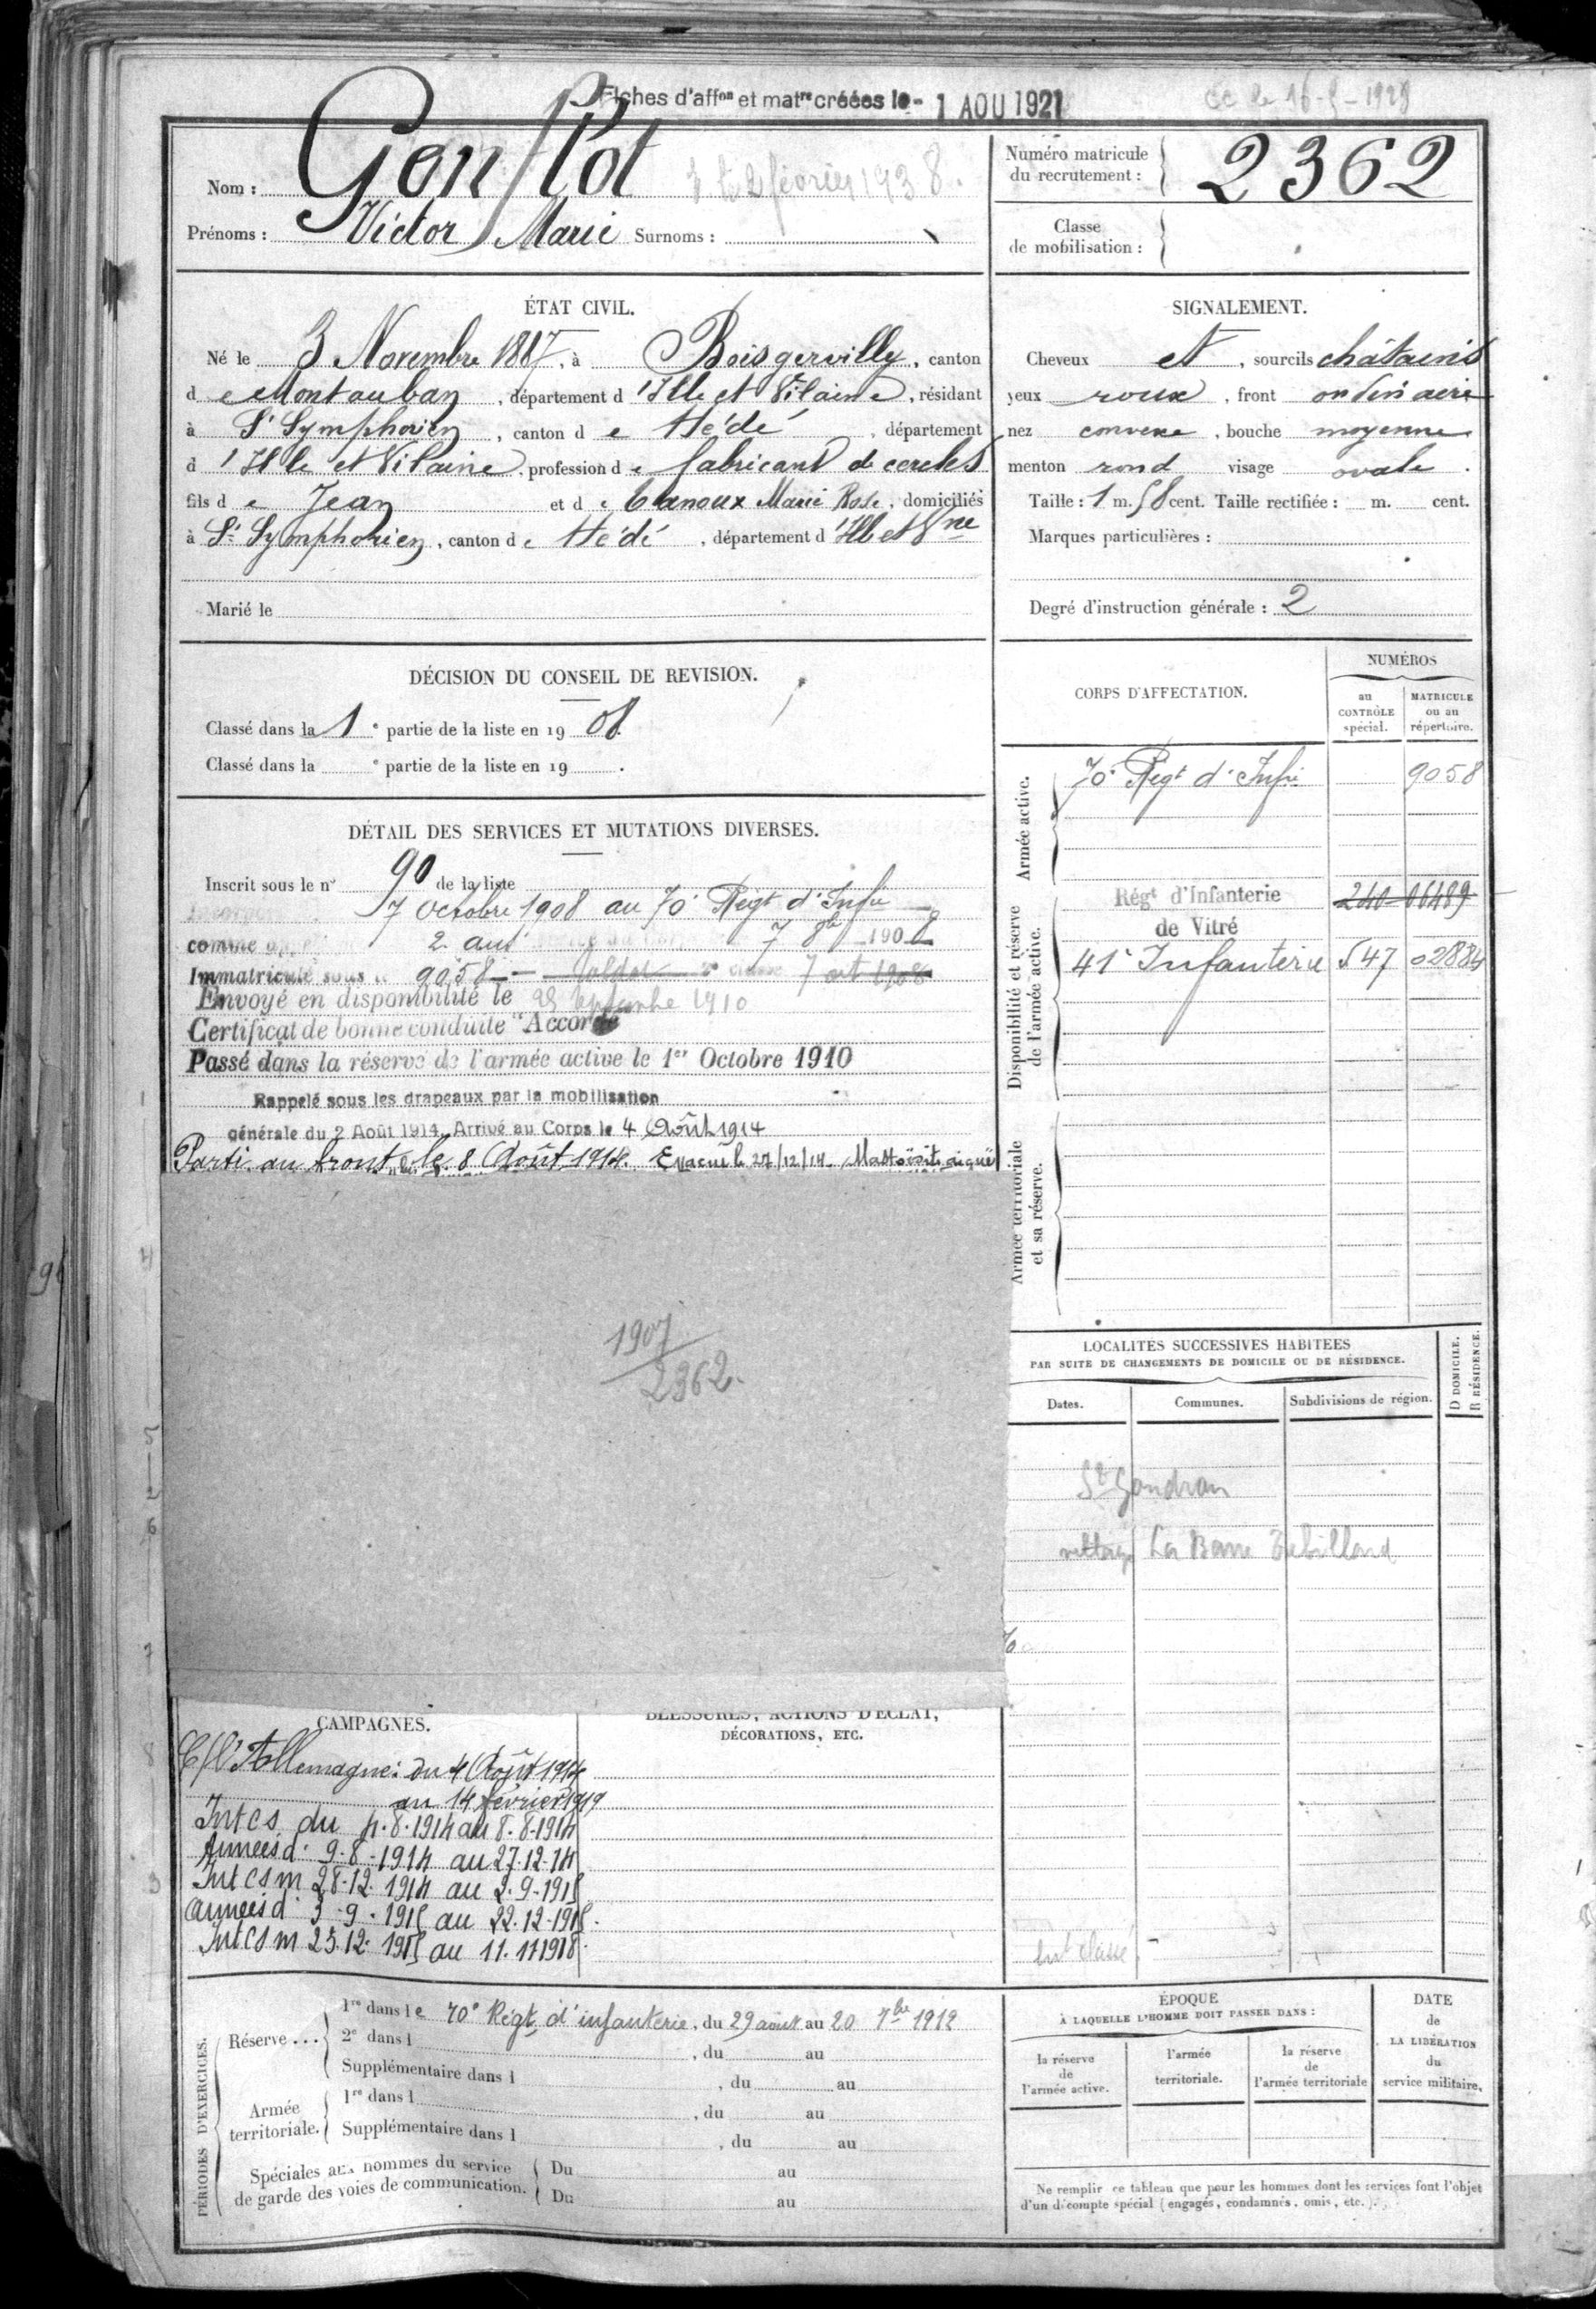 Fiches d'affon et matre créées le - 1 AOU 1921
Nom : Gouflot
Prénoms : Victor Marie Surnoms :
Numéro matricule du recrutement : 2362
Classe de mobilisation :
ÉTAT CIVIL.
Né le 3 Novembre 1887, à Boisgervilly, canton
de Montauban, département d'Ille et Vilaine, résidant
à St Symphorien, canton de Hédé, département
d'Ille et Vilaine, profession de fabricant de cercles
fils de Jean et de Canoux Marie Rose, domiciliés
à St Symphorien, canton de Hédé, département d'Ille et Vne
Marié le
SIGNALEMENT.
Cheveux et, sourcils châtains
yeux roux, front ordinaire
nez convexe, bouche moyenne
menton rond visage ovale.
Taille : 1 m. 58 cent. Taille rectifiée : m. cent.
Marques particulières :
Degré d'instruction générale : 2
DÉCISION DU CONSEIL DE REVISION.
Classé dans la 1e partie de la liste en 1908.
Classé dans la e partie de la liste en 19 .
DÉTAIL DES SERVICES ET MUTATIONS DIVERSES.
Inscrit sous le no 90 de la liste
7 Octobre 1908 au 70e Régt d'Infie
comme 2 ans 7 8bre 1908
Immatriculé sous le 9058 Soldat 2e classe 7 oct 1908
Envoyé en disponibilité le 25 septembre 1910
Certificat de bonne conduite "Accordé
Passé dans la réserve de l'armée active le 1er Octobre 1910
Rappelé sous les drapeaux par la mobilisation
générale du 2 Août 1914. Arrivé au Corps le 4 Août 1914
Parti au front le 8 Août 1914. Evacué le 27/12/14 Mastoïdite aiguë
1907
2362.
CORPS D'AFFECTATION.
NUMÉROS
au CONTRÔLE spécial.
MATRICULE ou au répertoire.
Armée active.
70e Régt d'Infie 9058
Disponibilité et réserve de l'armée active.
Régt d'Infanterie 240 06489
de Vitré
41e Infanterie 547 02884
Armée territoriale et sa réserve.
LOCALITÉS SUCCESSIVES HABITÉES
PAR SUITE DE CHANGEMENTS DE DOMICILE OU DE RÉSIDENCE.
Dates. Communes. Subdivisions de région. D DOMICILE. R RÉSIDENCE.
St Gondran
village La Barre
CAMPAGNES.
C/l'Allemagne : du 4 Août 1914
au 14 février 1919
Int CS du 4.8.1914 au 8.8.1914
Armées d. 9-8-1914 au 27.12.14
Int CS m 28-12 1914 au 2.9-1915
Armées d. 3-9-1915 au 22.12.1915.
Int CS m 23.12. 1915 au 11.11 1918.
BLESSURES, ACTIONS D'ÉCLAT,
DÉCORATIONS, ETC.
PÉRIODES D'EXERCICES.
Réserve ...
1re dans le 70e Régt d'infanterie, du 29 août au 20 7bre 1912
2e dans l , du au
Supplémentaire dans l , du au
Armée territoriale.
1re dans l , du au
Supplémentaire dans l , du au
Spéciales aux hommes du service
de garde des voies de communication.
Du au
Du au
ÉPOQUE
À LAQUELLE L'HOMME DOIT PASSER DANS :
la réserve de l'armée active.
l'armée territoriale.
la réserve de l'armée territoriale
DATE
de
LA LIBÉRATION
du
service militaire.
Ne remplir ce tableau que pour les hommes dont les services font l'objet
d'un décompte spécial (engagés, condamnés, omis, etc.).